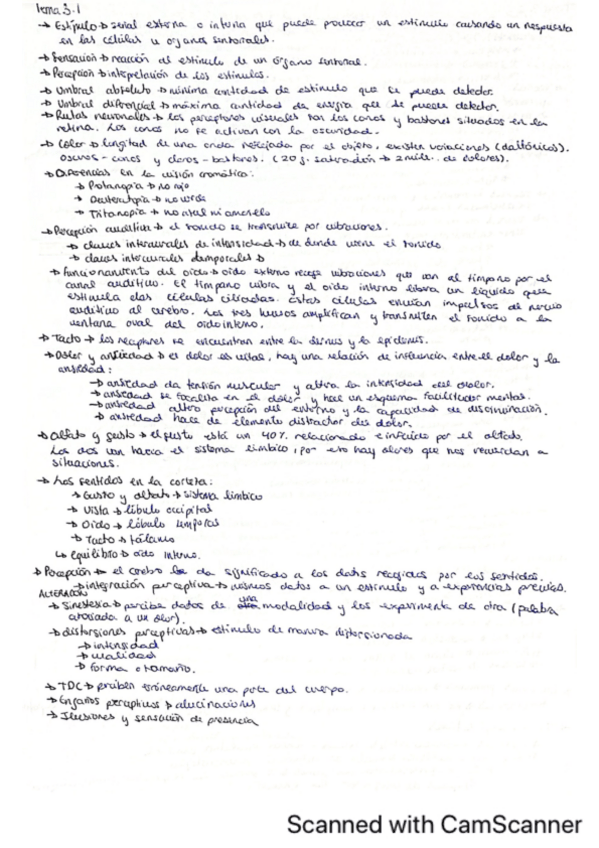 Tema 3.1
→ Estímulo → señal externa o interna que puede provocar un estímulo causando una respuesta
en las células u órganos sensoriales.
→ Sensación → reacción al estímulo de un órgano sensorial.
→ Percepción → interpretación de los estímulos.
→ Umbral absoluto → mínima cantidad de estímulo que se puede detectar.
→ Umbral diferencial → máxima cantidad de energía que se puede detectar.
→ Rutas neuronales → los receptores visuales son los conos y bastones situados en la
retina. Los conos no se activan con la oscuridad.
→ Color → longitud de una onda reflejada por el objeto, existen variaciones (daltónicos).
oscuros - conos y claros - bastones. (20 j. saturación → 2 mill. de colores).
→ Diferencias en la visión cromática:
→ Protanopia → no rojo
→ Deuteratopia → no verde
→ Tritanopia → no azul ni amarillo
→ Percepción auditiva → el sonido se transmite por vibraciones.
→ claves interaurales de intensidad → de donde viene el sonido
→ claves interaurales temporales →
→ Funcionamiento del oído → oído externo recoge vibraciones que van al tímpano por el
canal auditivo. El tímpano vibra y el oído interno libera un líquido que
estimula las células ciliadas. Estas células envían impulsos de nervio
auditivo al cerebro. Los tres huesos amplifican y transmiten el sonido a la
ventana oval del oído interno.
→ Tacto → los receptores se encuentran entre la dermis y la epidermis.
→ Dolor y ansiedad → el dolor es vital, hay una relación de influencia entre el dolor y la
ansiedad:
→ ansiedad da tensión muscular y altera la intensidad del dolor.
→ ansiedad se focaliza en el dolor y hace un esquema facilitador mental.
→ ansiedad altera percepción del entorno y la capacidad de discriminación.
→ ansiedad hace de elemento distractor del dolor.
→ Olfato y gusto → el gusto está un 40% relacionado e influido por el olfato.
Los dos van hacia el sistema límbico, por esto hay olores que nos recuerdan a
situaciones.
→ Los sentidos en la corteza:
→ Gusto y olfato → sistema límbico
→ Vista → lóbulo occipital
→ Oído → lóbulo temporal
→ Tacto → tálamo
↳ equilibrio → oído interno.
→ Percepción → el cerebro le da significado a los datos recogidos por los sentidos.
→ integración perceptiva → unimos datos a un estímulo y a experiencias previas.
ALTERACIÓN
→ Sinestesia → percibe datos de una modalidad y los experimenta de otra (palabra
asociada a un olor).
→ distorsiones perceptivas → estímulo de manera distorsionada
→ intensidad
→ cualidad
→ forma o tamaño.
→ TDC → perciben erróneamente una parte del cuerpo.
→ Engaños perceptivos → alucinaciones
→ Ilusiones y sensación de presencia
Scanned with CamScanner